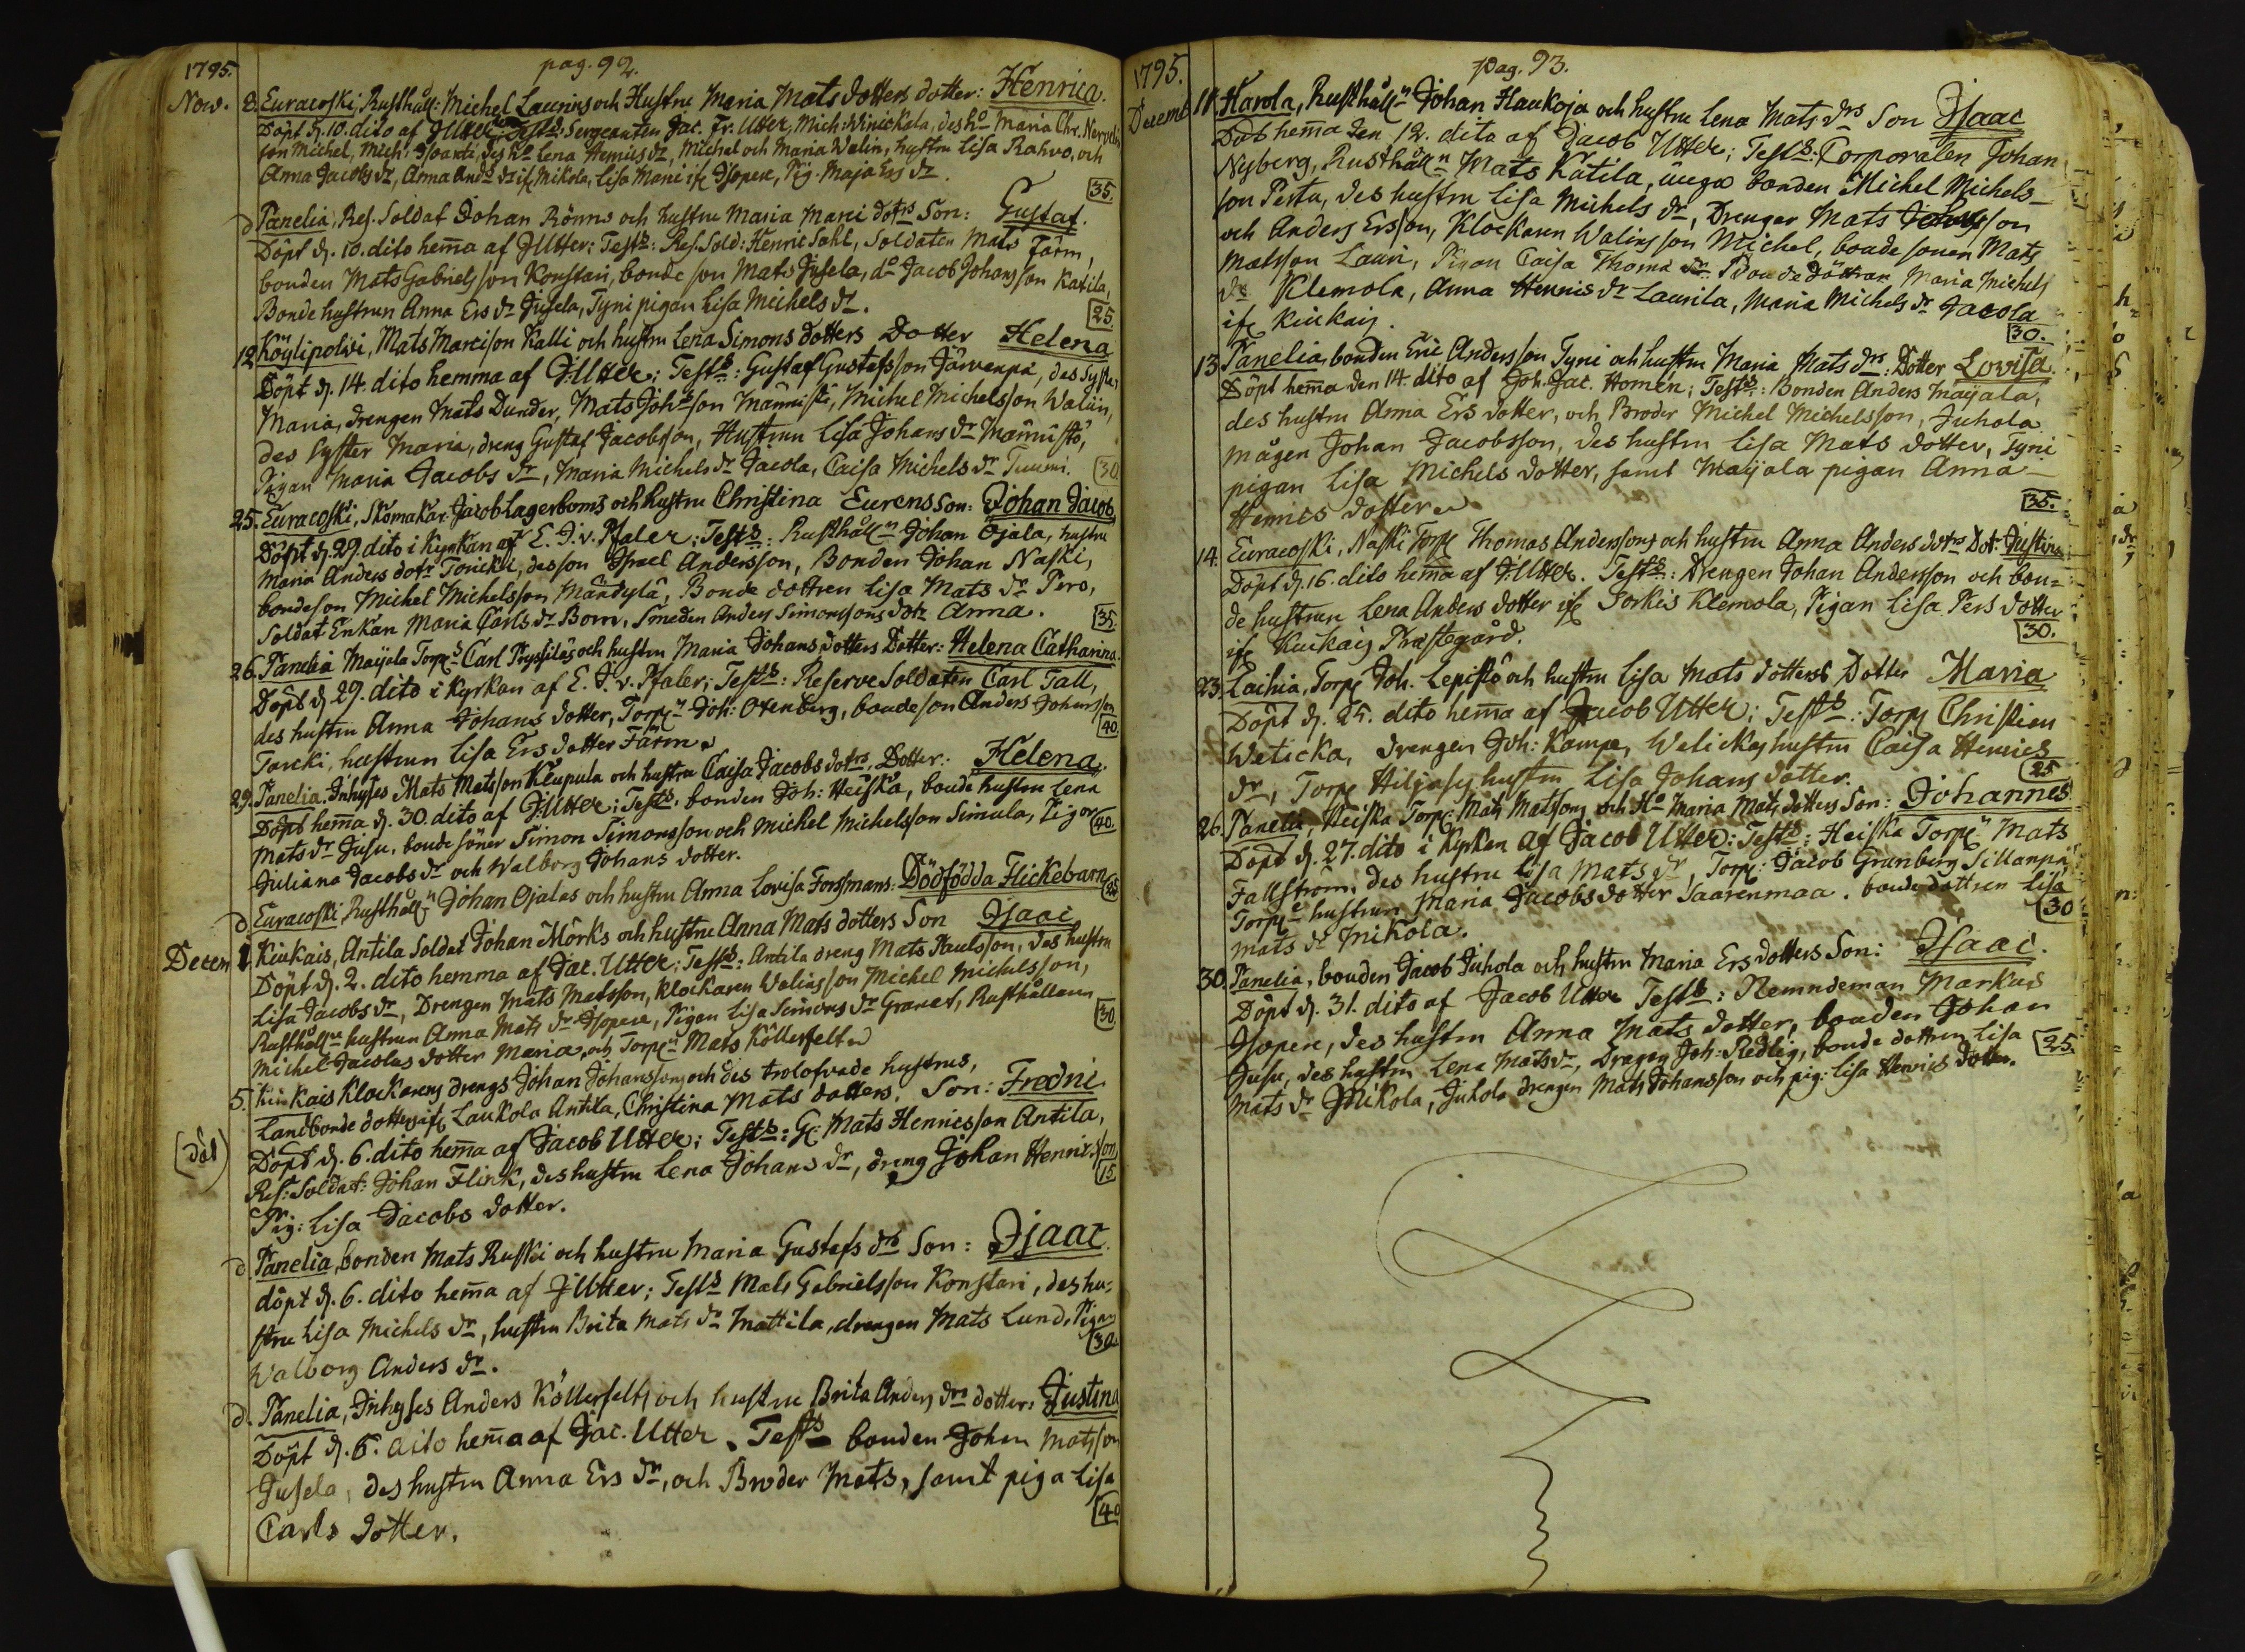 pag. 92.
1795.
Nov. 8. Euracoski, Rusthåll: Michel Laurins och Hustru Maria Mats dotters dotter: Henrica.
Döpt d. 10. dito af J Utter; Test: Sergeanten Jac. Fr. Utter, Mich: Winickala, des ho Maria Chr.
son Michel, Mich: des ho Lena Henrics dr, Michel och Maria Walin, hustru Lisa Rahvo, och
Anna Jacobs dr, Anna And: dr if. Mikola, Lisa Marci if. Isopere, Pig. Maja Ers dr.
35.
d Panelia, Res. Soldat Johan Rönns och hustru Maria Marci dotrs Son: Gustaf.
Döpt d. 10. dito hema af J Utter: Test: Res. Sold: Henric Sahl, Soldaten Mats Färm,
bonden Mats Gabrielsson Konstari, bonde son Mats Jusela, do Jacob Johansson Katila,
Bonde hustrun Anna Ers dr Jusela, Tyni pigan Lisa Michels dr.
25.
12. Köylipolvi, Mats Marcison Kalli och hustru Lena Simons dotters Dotter Helena
Döpt d. 14. dito hemma af J: Utter; Test: Gustaf Gustafsson Järvenpä, des Syster
Maria, drengen Mats Dunder, Mats Johsson Männistö, Michel Michelsson Walün,
des syster Maria, dreng Gustaf Jacobsson, Hustrun Lisa Johans dr Männistö,
Pigan Maria Jacobs dr, Maria Michels dr Jacola, Caisa Michels dr Tuumi.
30
25. Euracoski, Skomakar Jacob Lagerboms och hustru Christina Eurens Son: Johan Jacob
Döpt d. 29. dito i Kyrkan af E. J. v. Pfaler; Test: Rusthålln Johan Ojala, hustru
Maria Anders dotr Torickü, des son Israel Andersson, Bonden Johan Naski,
bondeson Michel Michelsson Mändylä, Bonde dottren Lisa Mats dr Pero,
Soldat Enkan Maria Carls dr Born, Smeden Anders Simonssons dotr Anna.
35.
26. Panelia Maijala Torp Carl Pryssiläs och hustru Maria Johans dotters Dotter: Helena Catharina.
Döpt d. 29. dito i Kyrkan af E. J. v. Pfaler; Test: Reserve Soldaten Carl Tall,
des hustru Anna Johans dotter, Torp Joh: Oxenberg, bonde son Anders Johansson
Torcki, hustrun Lisa Ers dotter Färm.
40.
29. Panelia. Inhyses Mats Matsson Keupula och hustru Caisa Jacobs dotrs, Dotter: Helena.
Döpt hema d. 30. dito af J: Utter; Test: bonden Joh: Heiskå, bonde hustru Lena
Mats dr Jusu, bonde söner Simon Simonsson och Michel Michelsson Simula, Pigor
Juliana Jacobs dr och Walborg Johans dotter.
40.
d. Euracoski, Rusthålln Johan Ojalas och hustru Anna Lovisa Forssmans: Dödfödda Flickebarn
Decem 1. Kiukais, Antila Soldat Johan Mörks och hustru Anna Mats dotters Son Isaac
Döpt d. 2. dito hemma af Jac. Utter; Test: Antila dreng Mats Paulsson, des hustru
Lisa Jacobs dr, Drengen Mats Matsson, Klockaren Walins son Michel Michelsson,
Rusthålln hustrun Anna Mats dr Isopere, Pigan Lisa Simons dr Granat, Rusthållarn
Michel Jacolas dotter Maria, och Torp Mats Köllerfelt.
30.
5. Kiukais Klockarens drengs Johan Johanssons och des trolofvade hustrus,
Landbonde dotters if. Laukola Antila, Christina Mats dotters, Son: Fredric
(död) Döpt d. 6. dito hema af Jacob Utter; Test: G: Mats Henricsson Antila,
Res: Soldat: Johan Flink, des hustru Lena Johans dr, dreng Johan Henricsson,
Pig: Lisa Jacobs dotter.
15.
d. Panelia, bonden Mats Ruski och hustru Maria Gustafs drs Son: Isaac.
döpt d. 6. dito hema af J Utter; Test Mats Gabrielsson Konstari, des hu-
stru Lisa Michels dr, hustru Brita Mats dr Mattila, drengen Mats Lund, Pigan
Walborg Anders dr.
30.
d. Panelia, Inhyses Anders Köllerfelts och hustru Brita Anders drs dotter: Justina
Döpt d. 6. dito hema af Jac. Utter. Test bonden Johan Matsson
Jusela, des hustru Anna Ers dr, och Broder Mats, samt piga Lisa
Carls dotter.
40
pag. 93.
1795.
Decemb 11. Harola, Rusthålln Johan Haukoja och hustru Lena Mats drs Son Isaac
Döb hema den 12. dito af Jacob Utter; Test: Corporalen Johan
Nyberg, Rusthålln Mats Kätila, unga bonden Michel Michels-
son Pertu, des hustru Lisa Michels dr, Drenger Mats Johansson
och Anders Ersson, Klockaren Walins son Michel, bonde sonen Mats
Matsson Lauri, Pigan Caisa Thoma dr Bonde döttran Maria Michels
dr Klemola, Anna Henrics dr Laurila, Maria Michels dr Jacola
if. Kiukais.
30.
13. Panelia, bonden Eric Andersson Tyni och hustru Maria Mats drs: Dotter Lovisa
Döpt hema den 14. dito af Joh. Jac. Homen; Test: Bonden Anders Maijala,
des hustru Anna Ers dotter, och Broder Michel Michelsson, Juhola
mågen Johan Jacobsson, des hustru Lisa Mats dotter, Tyni
pigan Lisa Michels dotter, samt Maijala pigan Anna
Henrics dotter.
35.
14. Euracoski, Naski Torp Thomas Anderssons och hustru Anna Anders dotrs Dot: Justina
Döpt d. 16. dito hema af J: Utter. Test: Drengen Johan Andersson och bon-
de hustrun Lena Anders dotter if. Sorkis Klemola, Pigan Lisa Pers dotter
if. Kiukais Prästegård.
30.
23. Laihia, Torp Joh. Lepistö och hustru Lisa Mats dotters Dotter Maria
Döpt d. 25. dito hema af Jacob Utter; Test: Torp Christian
Waticka, drengen Joh: Kampe, Walickas hustru Caisa Henrics
dr, Torp Hiljases hustru Lisa Johans dotter.
25
26. Panelia, Heiska Torp: Mats Matssons och Ho Maria Mats dotters Son: Johannes
Döpt d. 27. dito i Kyrkan af Jacob Utter; Test: Heiska Torp Mats
Fallström, des hustru Lisa Mats dr, Torp: Jacob Granberg Sillanpä
Torp hustrun Maria Jacobs dotter Saarenmaa. bonde dottren Lisa
Mats dr Mikola.
30
30. Panelia, bonden Jacob Juhola och hustru Maria Ers dotters Son: Isaac.
Döpt d. 31. dito af Jacob Utter Test: Nemndeman Markus
Isopere, des hustru Anna Mats dotter, bonden Johan
Jusu, des hustru Lena Mats dr, Dragon Joh: Redlig, bonde dottren Lisa
Mats dr Mikola, Juhola drengen Mats Johansson och pig: Lisa Henrics dotter.
25.